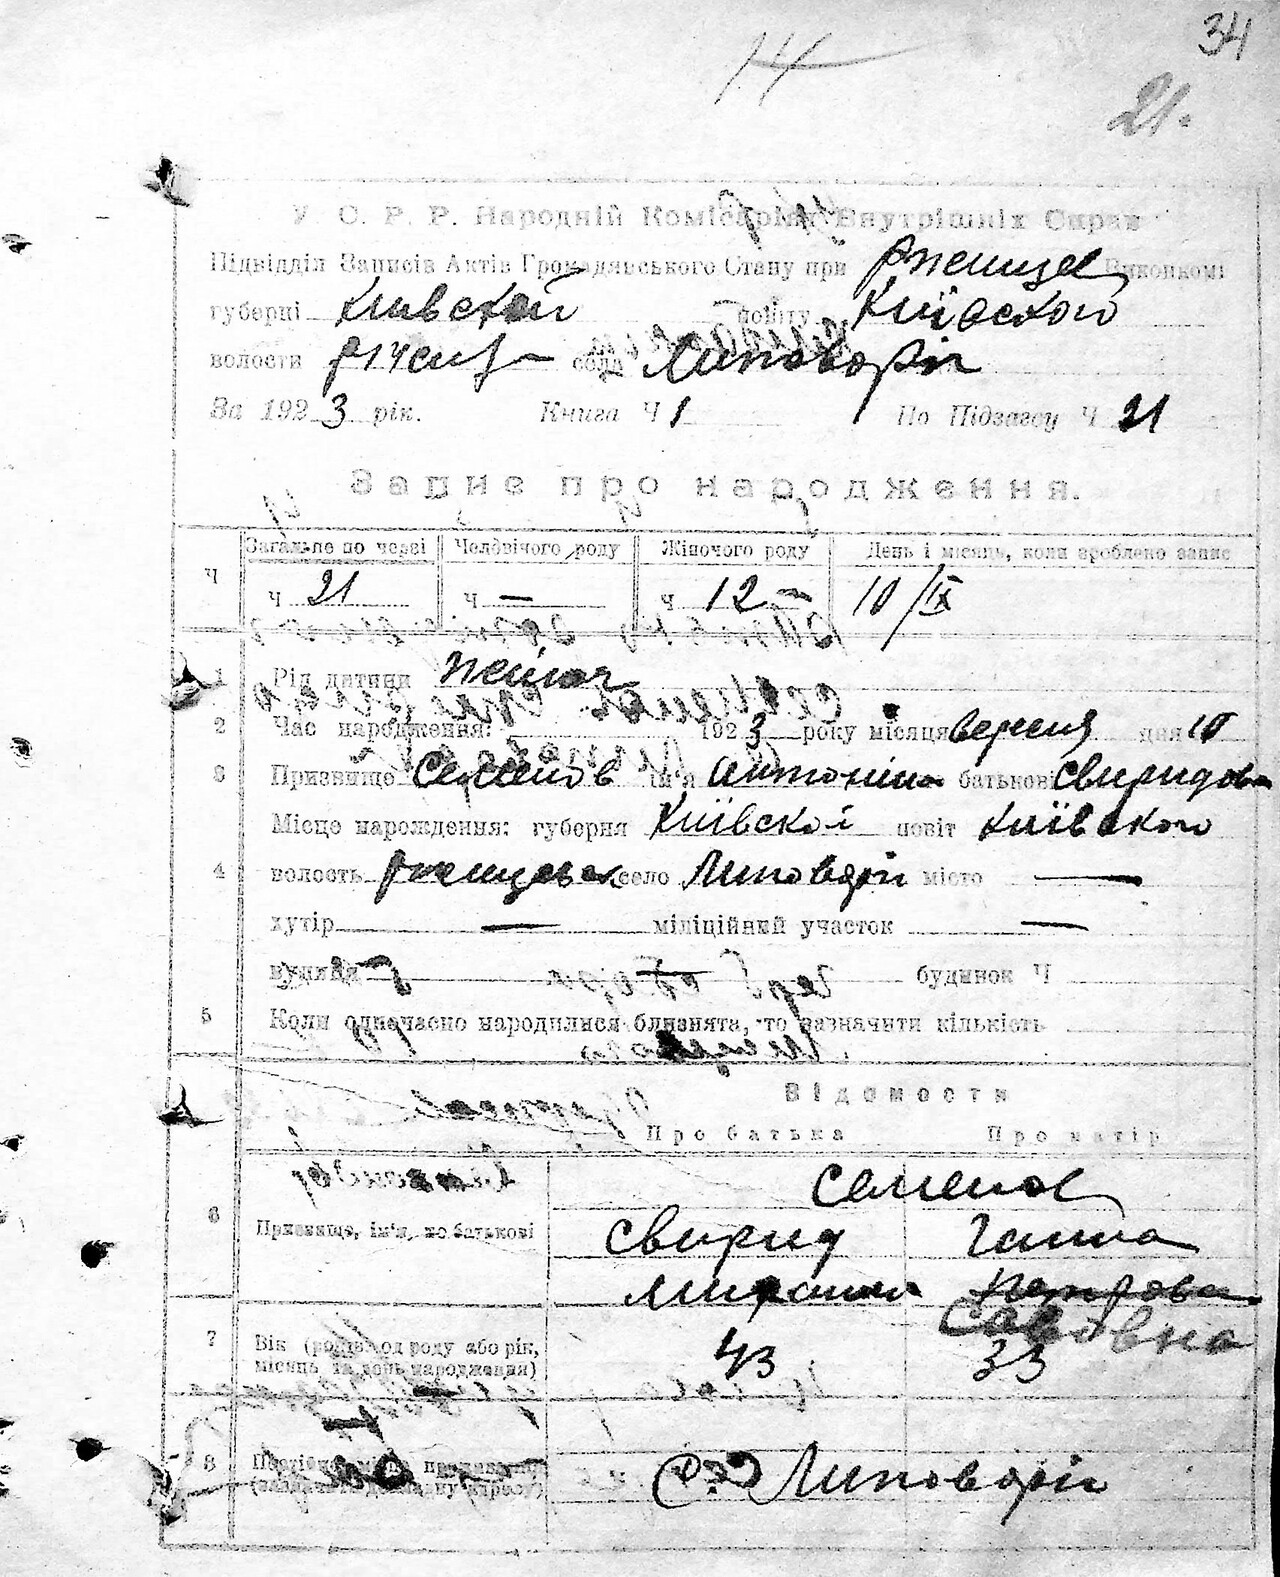 34
14
21.
У. С. Р. Р. Народній Комісаріят Внутрішніх Справ
Підвідділ Записів Актів Громадянського Стану при Ржищев Виконкомі
губерні Київскої повіту Київского
волости Ржищ села Липоворіг
За 1923 рік. Книга Ч 1 По Підзагсу Ч 21
Запис про народження.
Ч Загальне по черзі Чоловічого роду Жіночого роду День і місяць, коли зроблено запис
ч 21 ч — ч 12 — 10/IX
1 Рід датини жіноч
2 Час народження: 1923 року місяця вересня дня 10
3 Призвище Семенов ім'я Антоніна батькові Свиридова
Місце нарождення: губерня Київскої повіт Київского
4 волость Ржищевск село Липоворіг місто —
хутір — міліційний участок —
вулиця — будинок Ч
5 Коли одначасно народилися близнята, то зазначити кількість
Відомости
Про батька Про матір
Семенов
6 Призвище, ім'я, по батькові Свирид Ганна
Петрова
Савовна
7 Вік (років од роду або рік, місяць та день народження) 43 33
8 С. Липоворіг